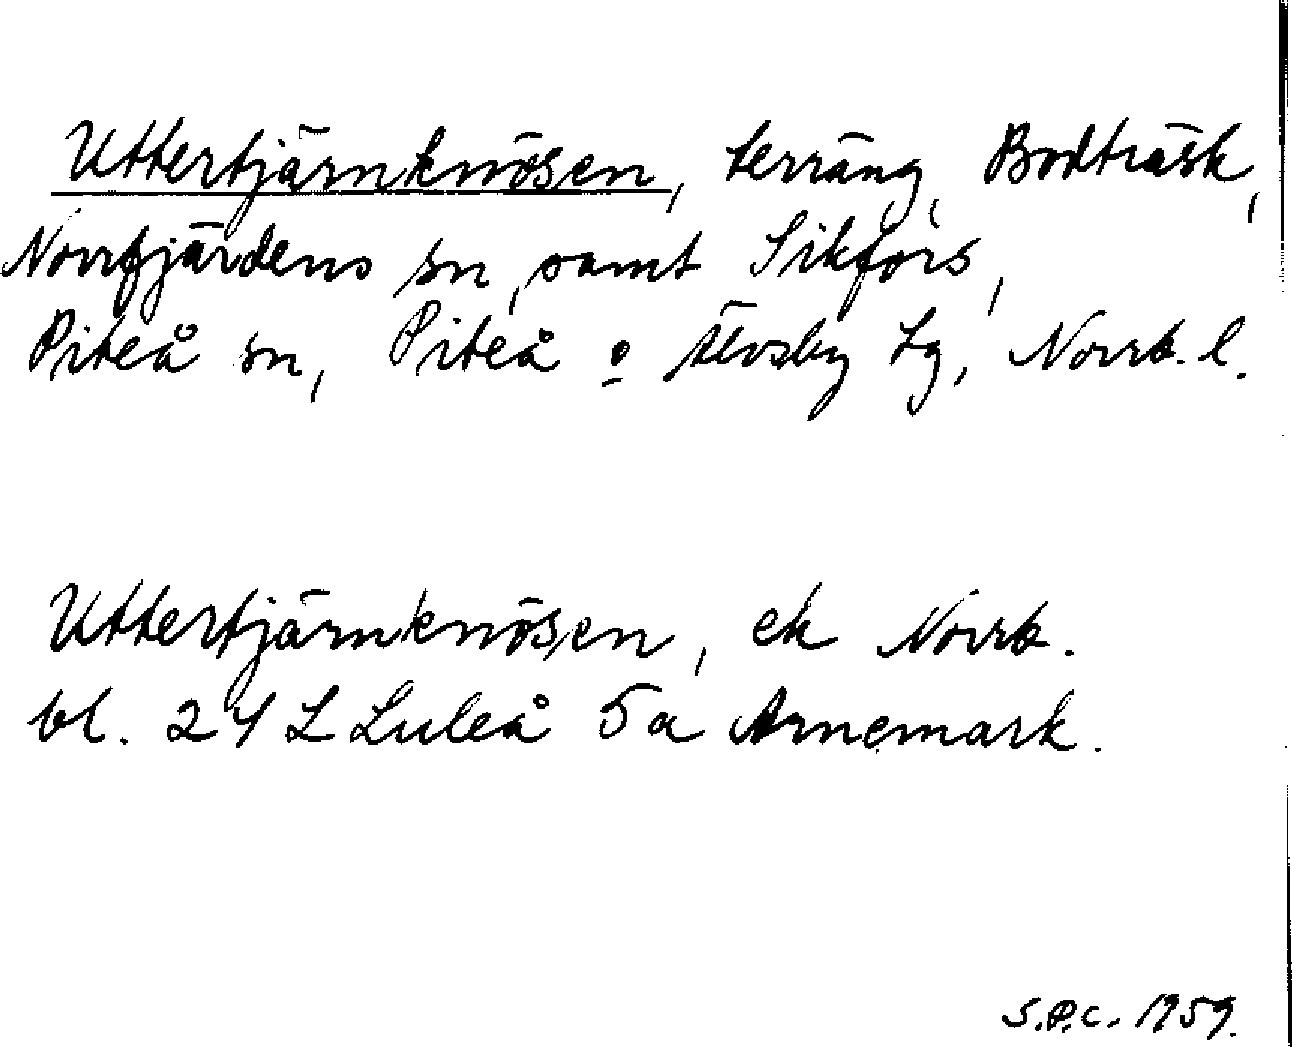 Uttertjärnknösen, terräng, Bodträsk,
Norrfjärdens sn, samt Sikfors,
Piteå sn, Piteå o Älvsby tg, Norrb. l.
Uttertjärnknösen, ek Norrb.
bl. 24 L Luleå 5a Arnemark.
S.P.C. 1959.